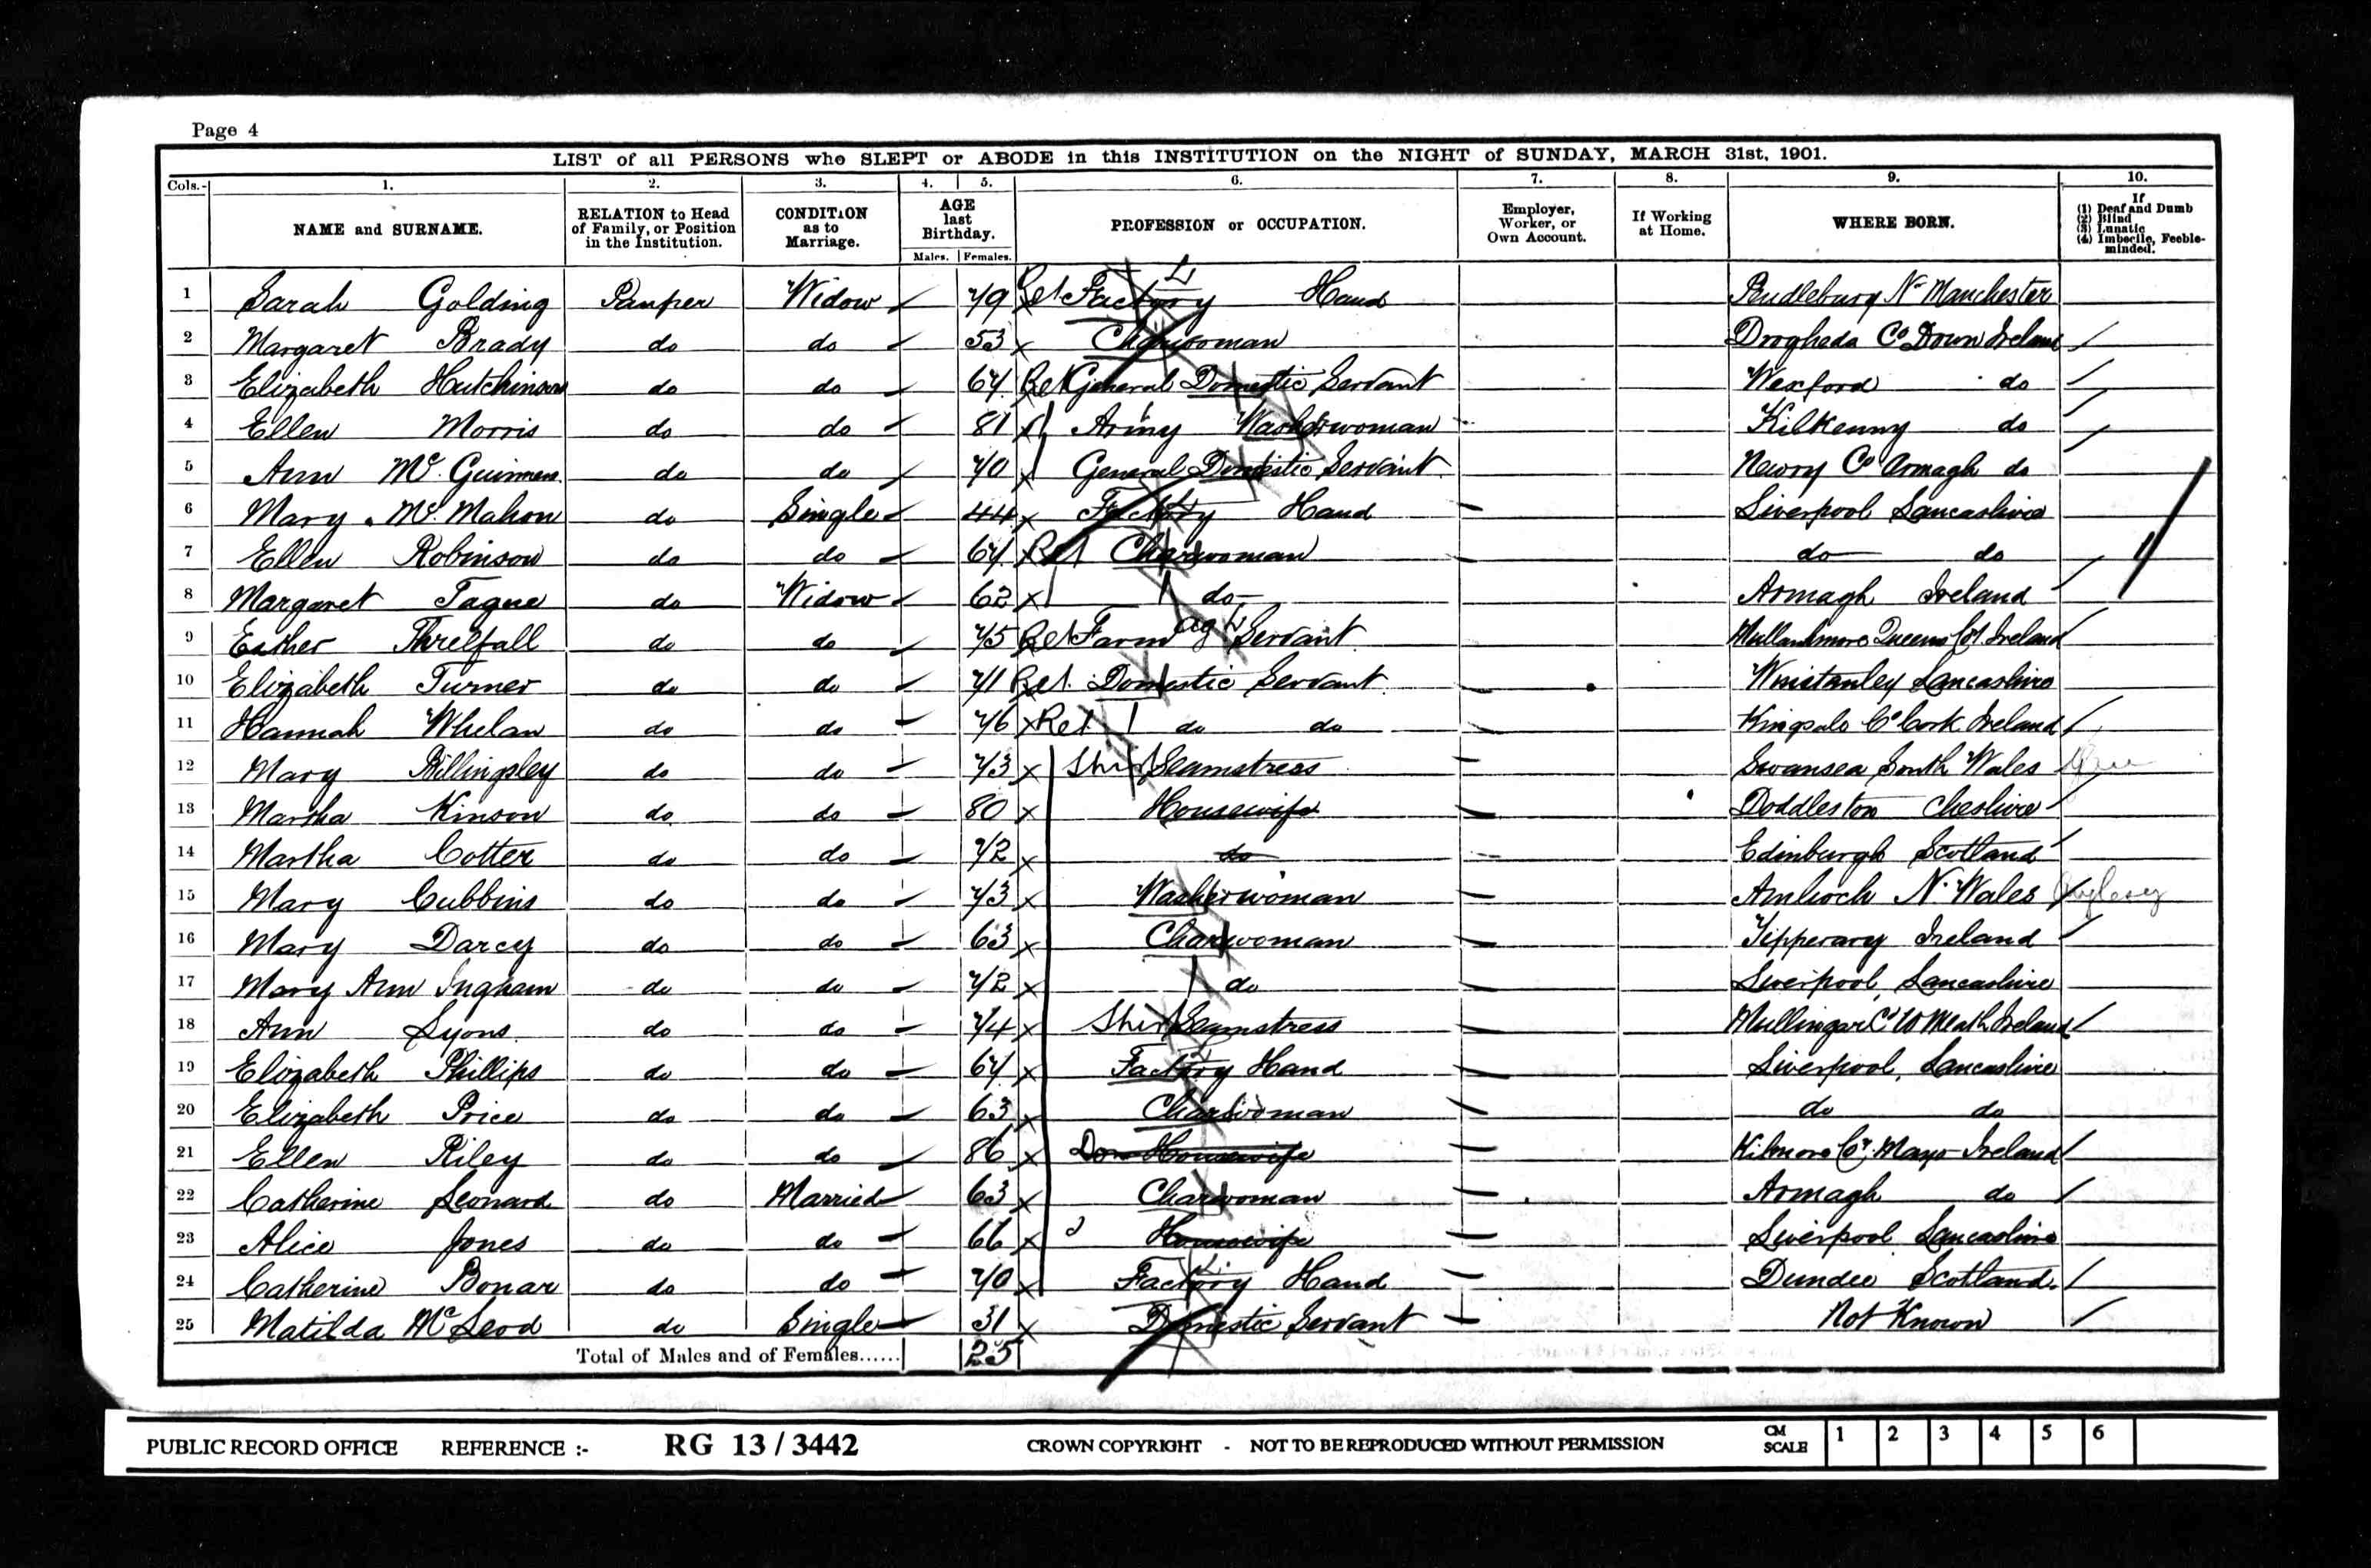 Page 4
LIST of all PERSONS who SLEPT or ABODE in this INSTITUTION on the NIGHT of SUNDAY, MARCH 31st, 1901.
Cols.- 1. 2. 3. 4. 5. 6. 7. 8. 9. 10.
NAME and SURNAME. RELATION to Head of Family, or Position in the Institution. CONDITION as to Marriage. AGE last Birthday. Males. Females. PROFESSION or OCCUPATION. Employer, Worker, or Own Account. If Working at Home. WHERE BORN. If (1) Deaf and Dumb (2) Blind (3) Lunatic (4) Imbecile, Feeble-minded.
1 Sarah Golding Pauper Widow 79 Ret Factory Hand Pendlebury Nr Manchester
2 Margaret Brady do do 53 Charwoman Drogheda Co Down Ireland
3 Elizabeth Hutchinson do do 67 Ret General Domestic Servant Wexford do
4 Ellen Morris do do 81 Army Washerwoman Kilkenny do
5 Ann McGuinness do do 70 General Domestic Servant Newry Co Armagh do
6 Mary McMahon do Single 44 Factory Hand Liverpool Lancashire
7 Ellen Robinson do do 67 Ret Charwoman do do
8 Margaret Tague do Widow 62 do Armagh Ireland
9 Esther Threlfall do do 75 Ret Farm Ag Servant Queens Co Ireland
10 Elizabeth Turner do do 71 Ret. Domestic Servant Winstanley Lancashire
11 Hannah Whelan do do 76 Ret do do Kingsale Co Cork Ireland
12 Mary Billingsley do do 73 Shirt Seamstress Swansea South Wales
13 Martha Kinson do do 80 Housewife Doddleston Cheshire
14 Martha Cotter do do 72 do Edinburgh Scotland
15 Mary Cubbins do do 73 Washerwoman Amlwch N. Wales Anglesey
16 Mary Darcy do do 63 Charwoman Tipperary Ireland
17 Mary Ann Ingham do do 72 do Liverpool, Lancashire
18 Ann Lyons do do 74 Shirt Seamstress Mullingar Co W Meath Ireland
19 Elizabeth Phillips do do 67 Factory Hand Liverpool, Lancashire
20 Elizabeth Price do do 63 Charwoman do do
21 Ellen Riley do do 86 Dom Housewife Kilmore Co. Mayo Ireland
22 Catherine Leonard do Married 63 Charwoman Armagh do
23 Alice Jones do do 66 Housewife Liverpool Lancashire
24 Catherine Bonar do do 70 Factory Hand Dundee Scotland.
25 Matilda McLeod do Single 31 Domestic Servant Not Known
Total of Males and of Females...... 25
PUBLIC RECORD OFFICE REFERENCE :- RG 13 / 3442 CROWN COPYRIGHT - NOT TO BE REPRODUCED WITHOUT PERMISSION CM SCALE 1 2 3 4 5 6